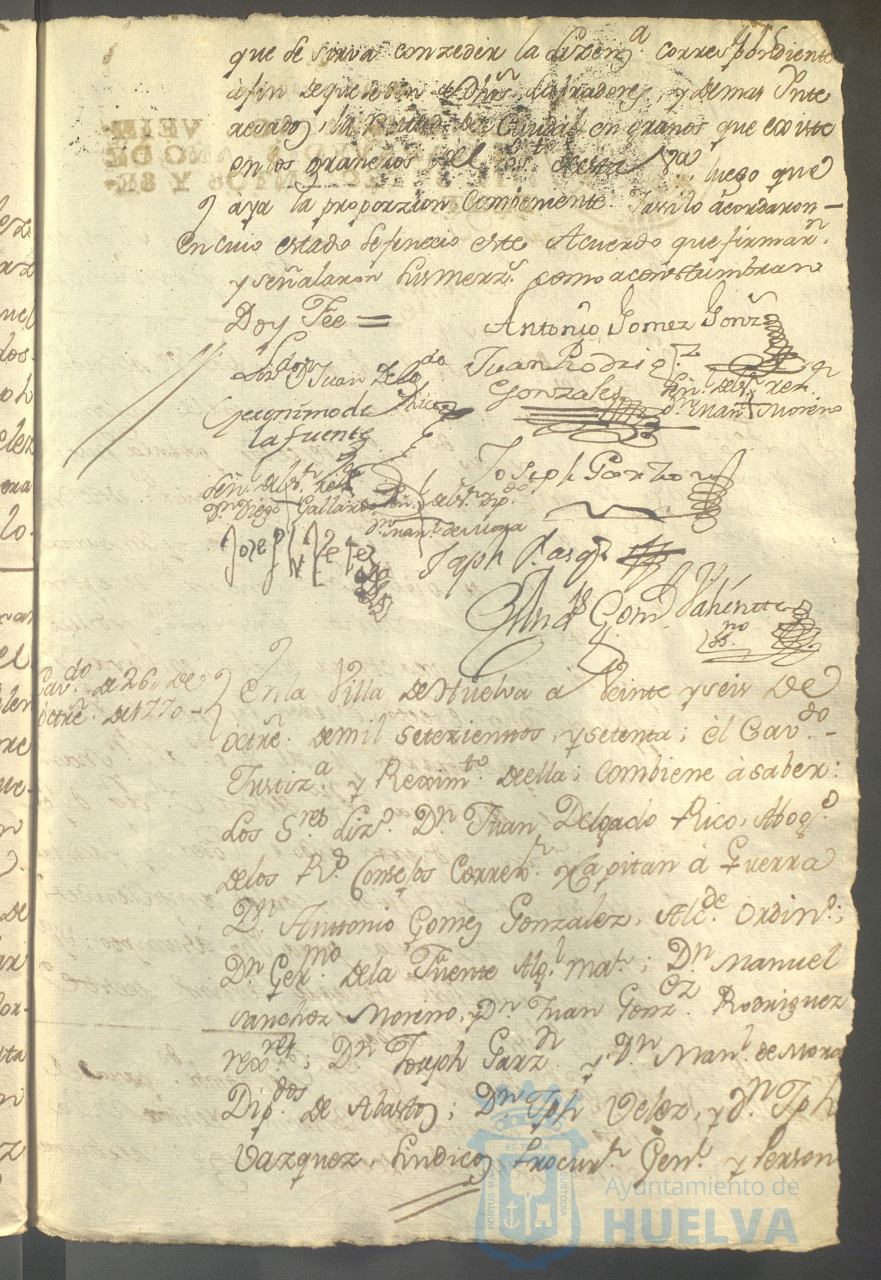 que se sirva conzeder la Lizenª correspondiente
afin de que se den a Dhos Labradores, y demas Inte
resados, la del Caudal en granos que existe
en los graneros del de esta Vª, luego que
aya la proporzion combeniente. Y asi lo acordaron—
en cuio estado se fenecio este Acuerdo que firmarⁿ.
y señalaron sus merzˢ. como acostumbran
Doy Fee =
Antonio Gomez Gonzˢ
Lizᵈᵒ Dⁿ Juan Delgᵈᵒ
Rico
Juan Rodrigᶻ
Gonzales
Señ. del Sʳ rexʳ
Dⁿ Manˡ + Moreno
Geronimo de
la fuente
Joseph Garzon
Señ. del Sʳ rexʳ
Dⁿ Diego + Gallardo
Señ. del Sʳ Dipᵈᵒ
Dⁿ Manˡ de Mora
Josef Velez
Jqph Vasqᶻ
Gomˢ Valiente
SSⁿᵒ
Cavᵈᵒ. de 26,, de
octrᵉ. de 1770—
En la Villa de Huelva à Veinte y seis de
octrᵉ. de mil setezientos, y setenta; èl Cavᵈᵒ.-
Justizª. y Reximᵗᵒ. de ella; combiene à saber:
Los Sʳᵉˢ Lizᵈᵒ. Dⁿ Juan Delgado Rico, Abogᵈᵒ
de los Rˢ Consejos Correxʳ. y Capitan à Guerra
Dⁿ. Antonio Gomez Gonzalez, Alcᵈᵉ Ordinº;
Dⁿ Gerᵐᵒ de la Fuente Algˡ Matʳ; Dⁿ Manuel
Sanchez Moreno, y Dⁿ Juan Gonzᵉᶻ. Rodriguez
rexʳᵉˢ; Dⁿ Joseph Garzⁿ y Dⁿ Manˡ de Mora
Dipᵈᵒˢ de Abastos; Dⁿ Jph Velez, y Dⁿ Jph
Vazquez, Sindicos Procurʳ. Genˡ. y Person
Ayuntamiento de
HUELVA